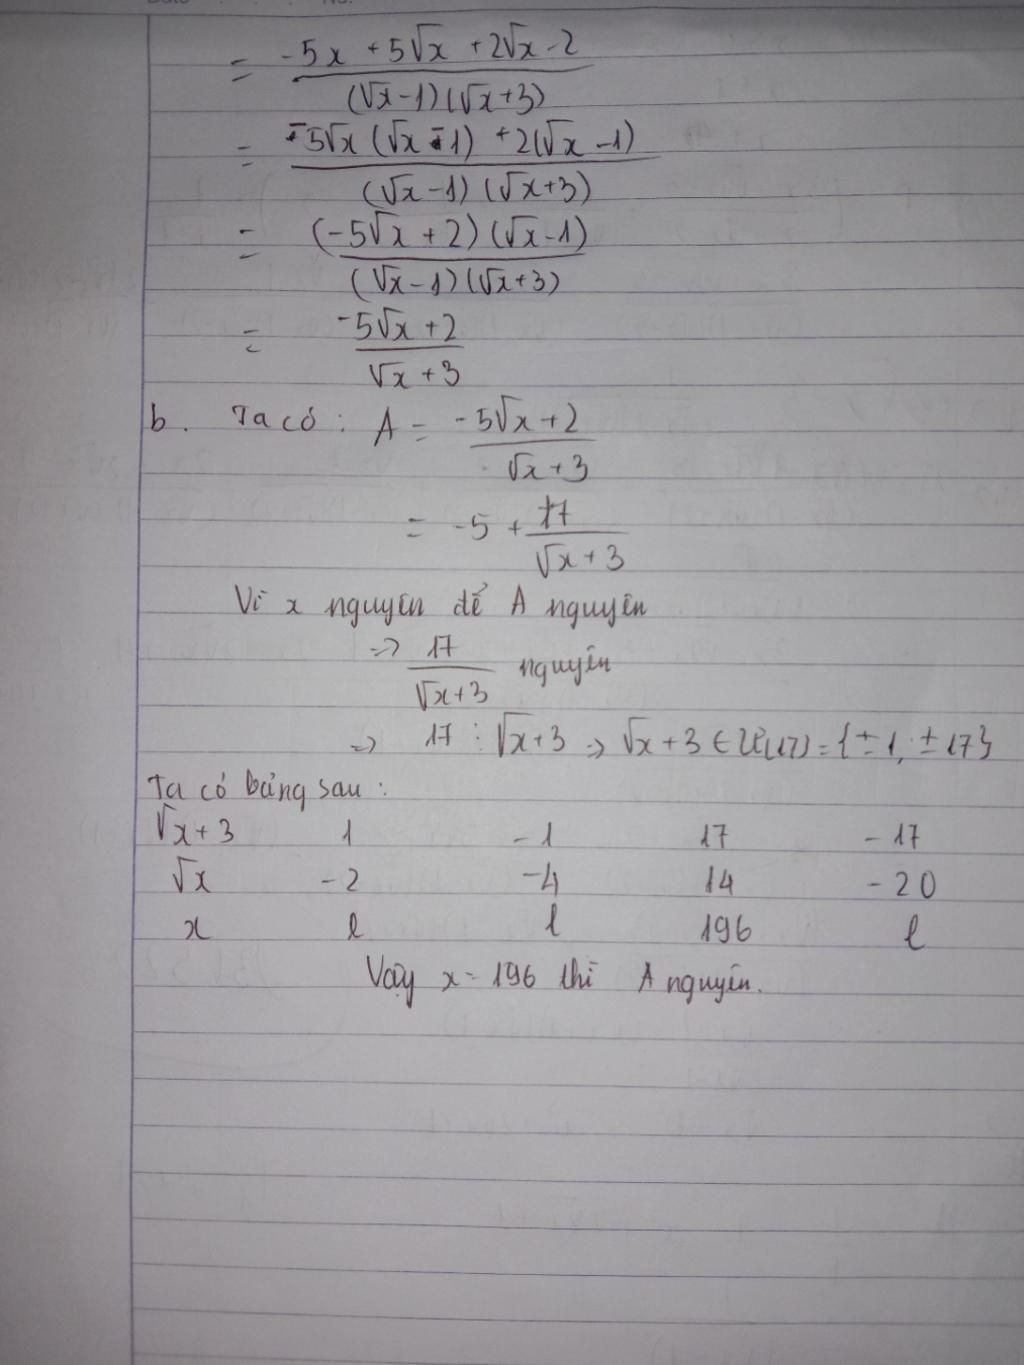 = -5x + 5√x + 2√x - 2 / (√x - 1)(√x + 3)
= -5√x (√x - 1) + 2(√x - 1) / (√x - 1)(√x + 3)
= (-5√x + 2)(√x - 1) / (√x - 1)(√x + 3)
= -5√x + 2 / √x + 3
b. Ta có: A = -5√x + 2 / √x + 3
= -5 + 17 / √x + 3
Vì x nguyên để A nguyên
=> 17 / √x + 3 nguyên
=> 17 ⋮ √x + 3 => √x + 3 ∈ Ư(17) = {±1, ±17}
Ta có bảng sau:
√x + 3 1 -1 17 -17
√x -2 -4 14 -20
x l l 196 l
Vậy x = 196 thì A nguyên.